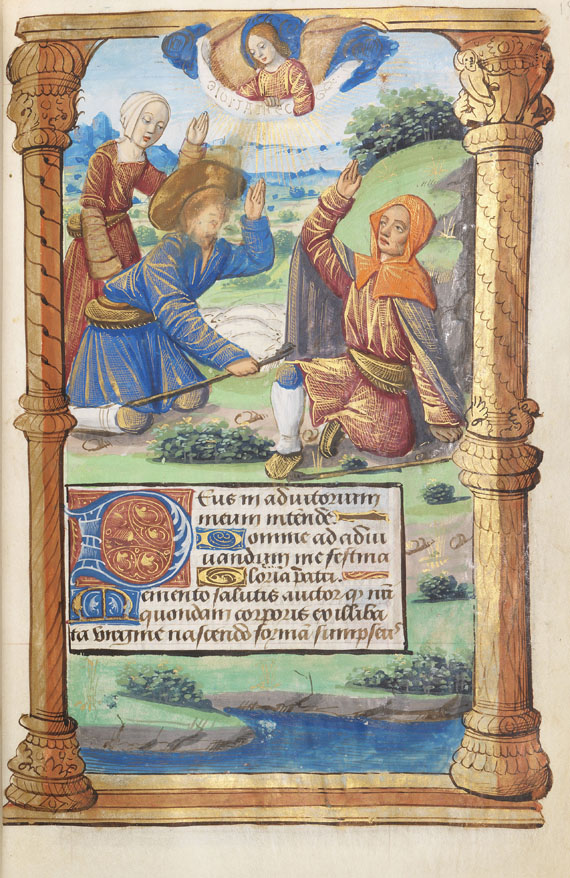 gloria in exc
Deus in adiutorium
meum intende.
Domine ad adiu
uandum me festina
Gloria patri.
Memento salutis auctor qȝ nr̄i
quondam corporis ex illiba
ta virgine nascendo formā sumpseris